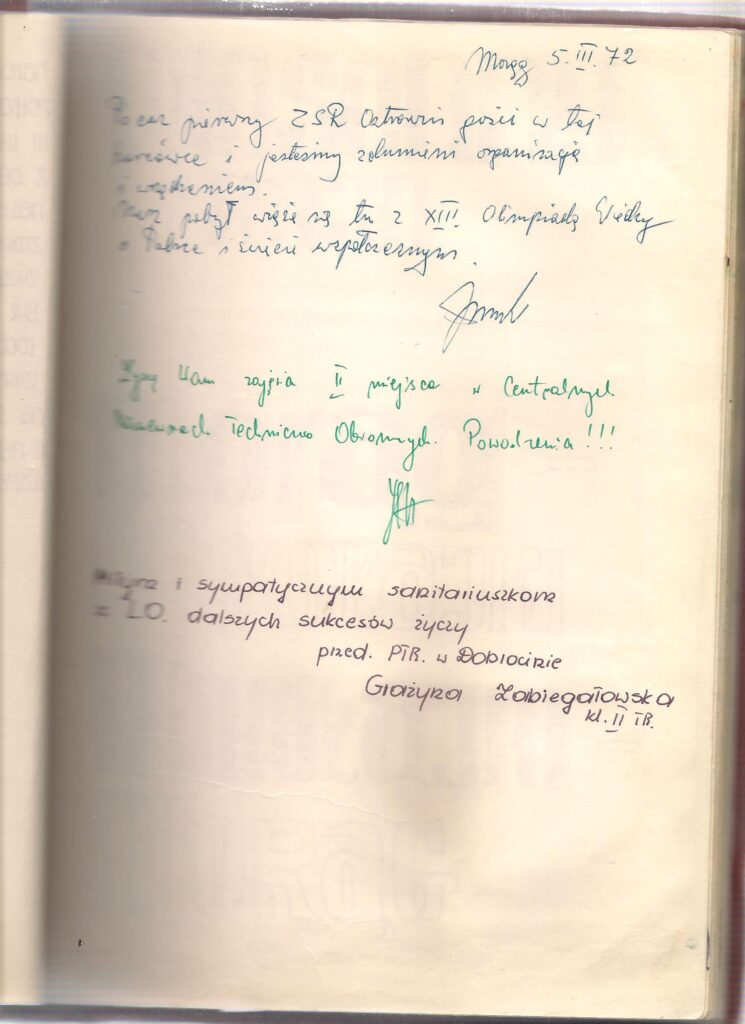 Morąg 5.III.72
Po raz pierwszy ZSR Ostrowin gości w tej
placówce i jesteśmy zdumieni organizacją
i urządzeniem.
Nasz pobyt wiąże się tu z XIII. Olimpiadą Wiedzy
o Polsce i świecie współczesnym.
Życzę Wam zajęcia II miejsca w Centralnych
Manewrach Techniczno Obronnych. Powodzenia!!!
Miłym i sympatycznym sanitariuszkom
z L.O. dalszych sukcesów życzy
przed. PTR. w Dobrocinie
Grażyna Zabiegałowska
kl. II TR.